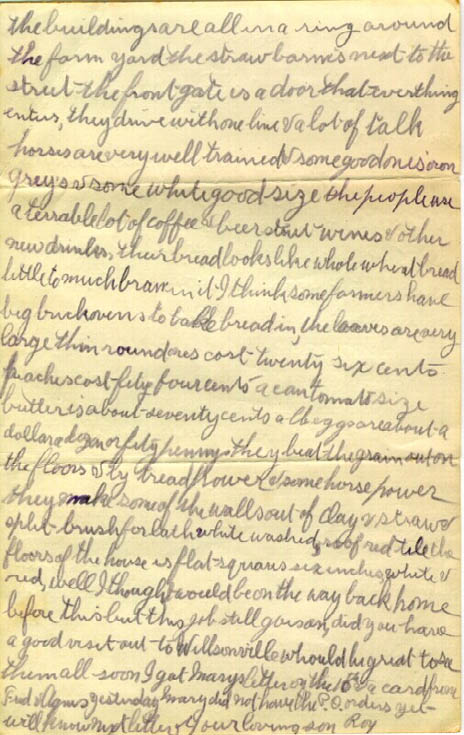 the buildings are all in a ring around
the farm yard the straw barns next to the
street the front gate is a door that everthing
enters, they drive with one line & a lot of talk
horses are very well trained & some good ones iron
greys & some white good size the people use
a terrable lot of coffee & beer wines & other
new drinks, their bread looks like whole wheat bread
little to much bran in it I think some farmers have
big brick ovens to bake bread in, the loaves are very
large thin round ones cost twenty six cents
peaches cost fity four cents a can tomato size
butter is about seventy cents a lb eggs are about a
dollar a dozen or fity pennys they beat the grain out on
the floors & by tread power & some horse power
they make some of the walls out of clay & straw &
split brush for lath white washed, roof red tile the
floors of the house is flat squares six inches white &
red, well I though I would be on the way back home
before this but this job still goes on, did you have
a good visit out to Willsonville whould be great to see
them all soon I got Marys letter of the 10th & a card from
Fred & Agnes yesterday Mary did not have the P.O orders yet
will know next letter Your loving son Roy